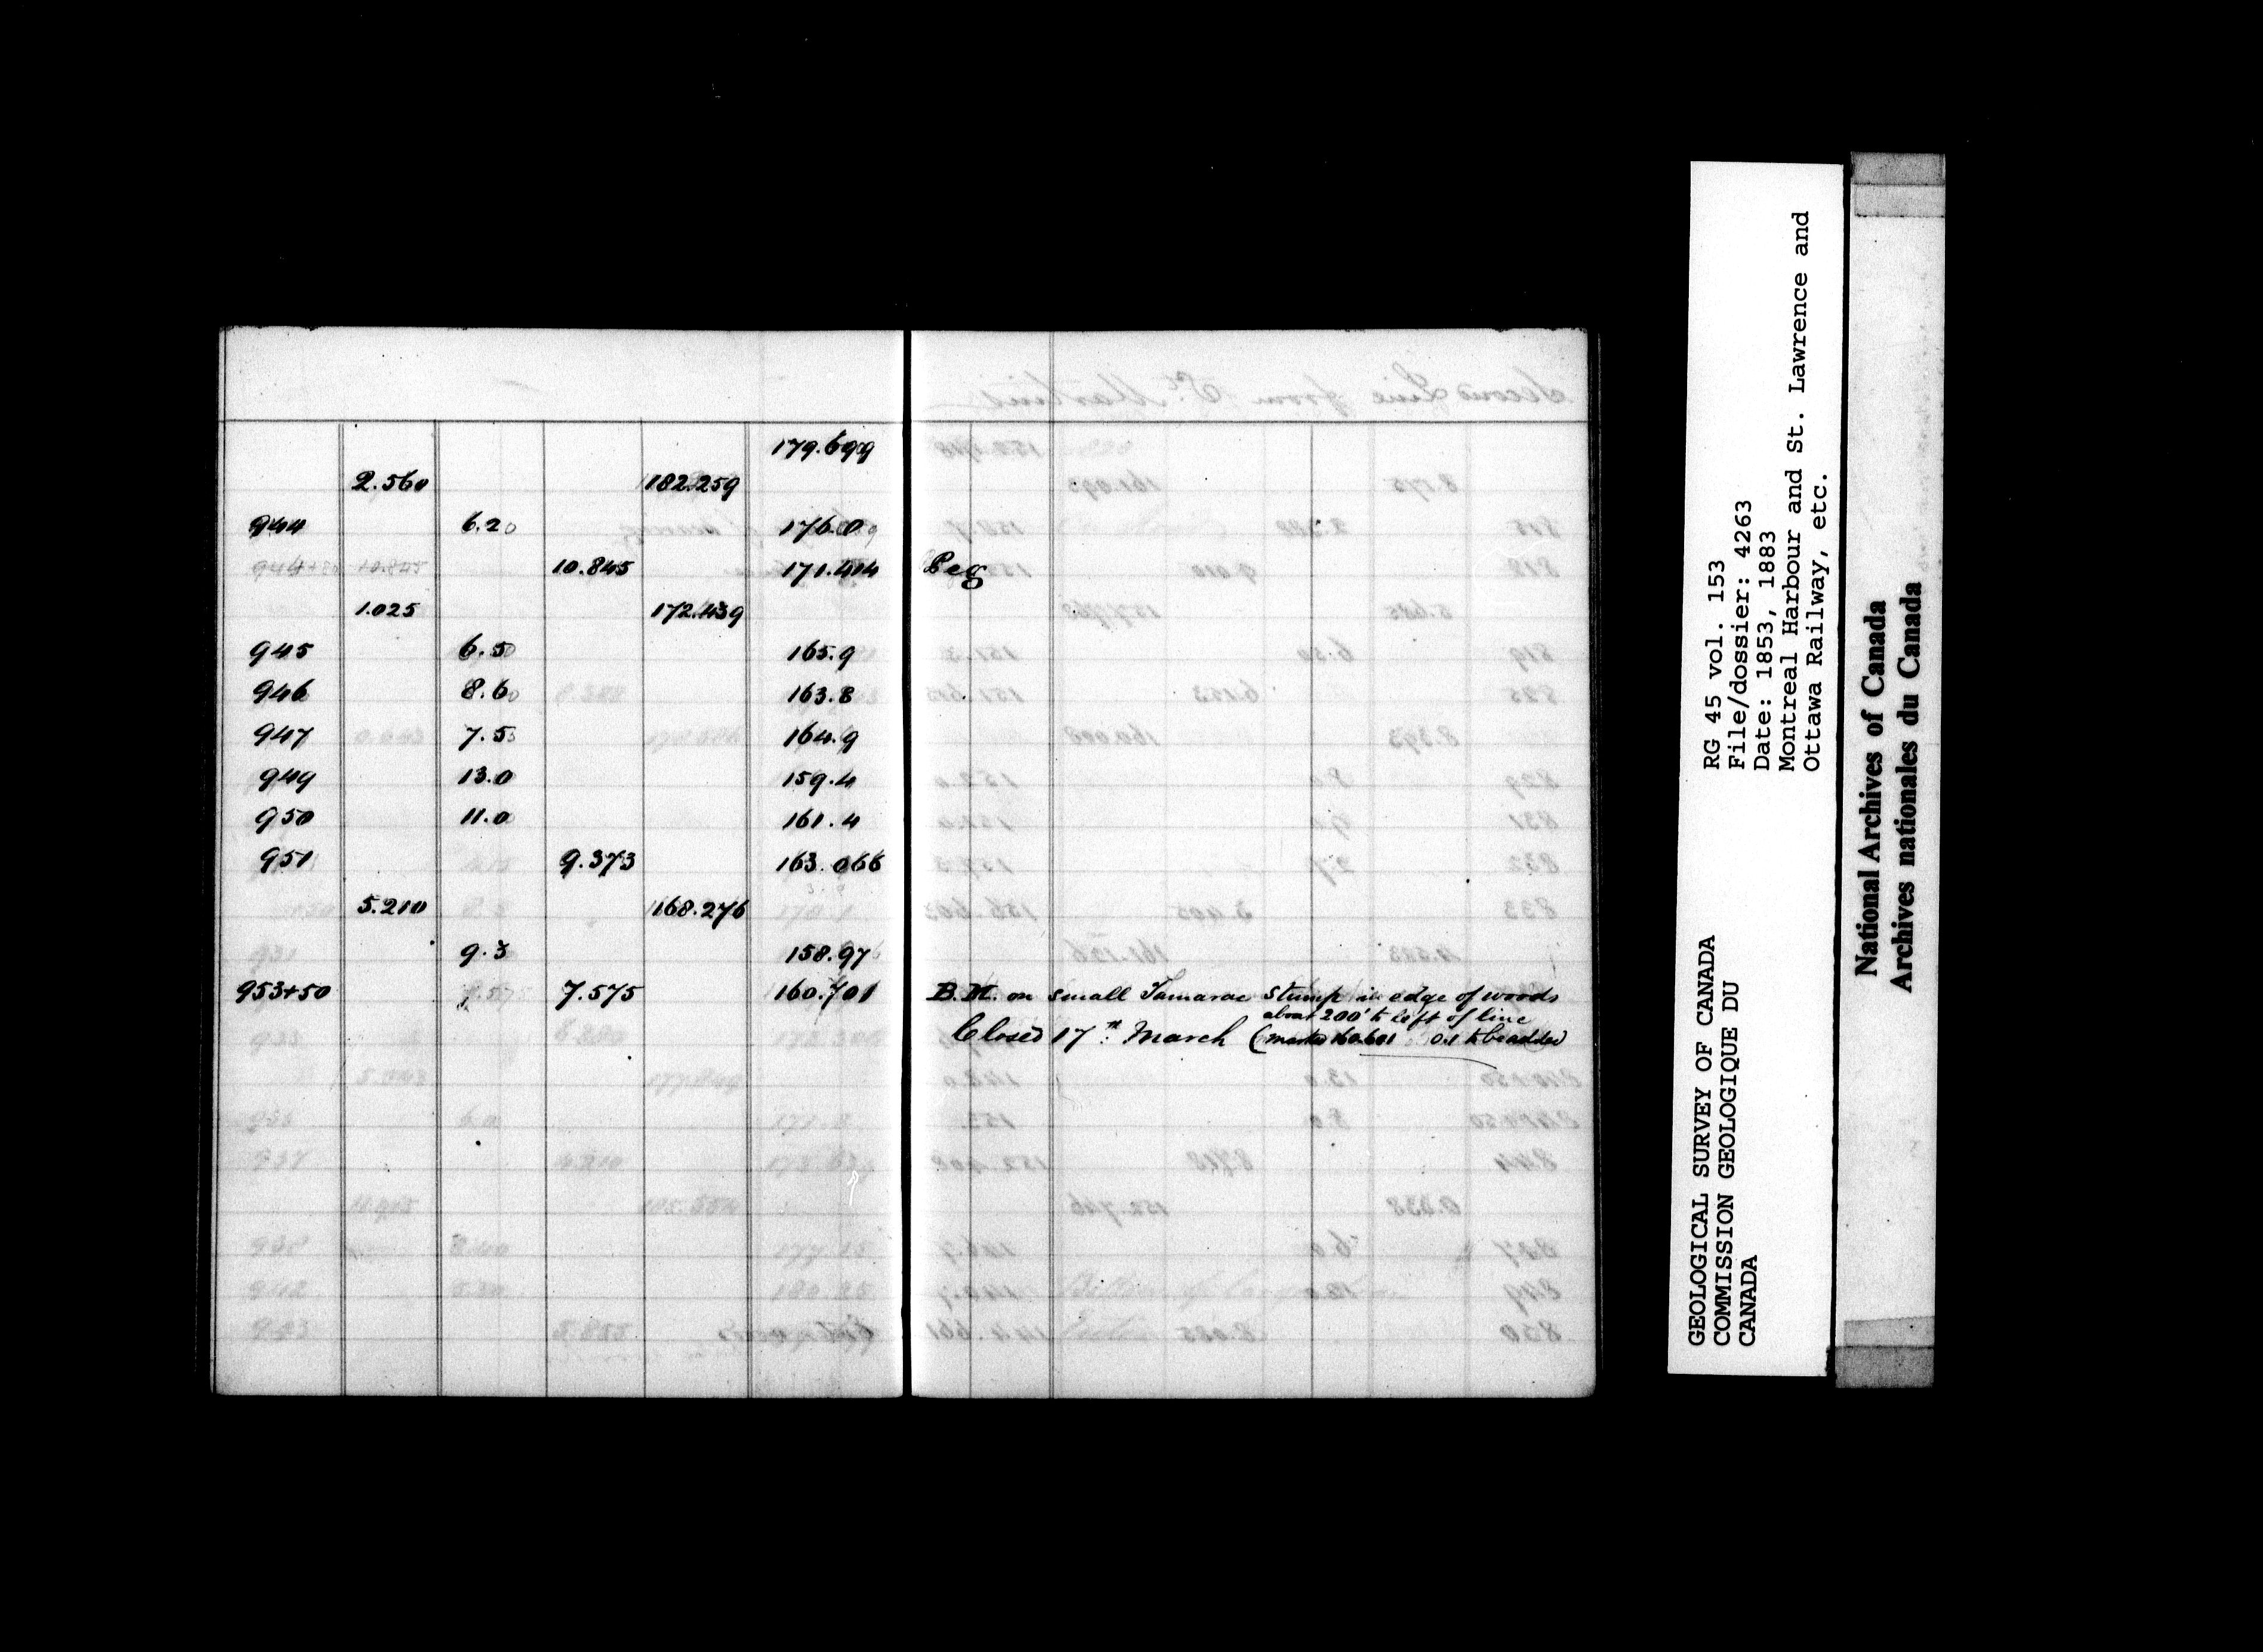 179.699
2.560 182.259
944 6.20 176.0
10.845 171.414 Peg
1.025 172.439
945 6.5 165.9
946 8.6 163.8
947 7.5 164.9
949 13.0 159.4
950 11.0 161.4
951 9.373 163.066
5.210 168.276
9.3 158.97
953+50 7.575 160.701 B.M. on small Tamarac stump in edge of woods
about 200' to left of line
Closed 17th March (marked 160.601 0.1 to be added)
GEOLOGICAL SURVEY OF CANADA
COMMISSION GEOLOGIQUE DU
CANADA
RG 45 vol. 153
File/dossier: 4263
Date: 1853, 1883
Montreal Harbour and St. Lawrence and
Ottawa Railway, etc.
National Archives of Canada
Archives nationales du Canada